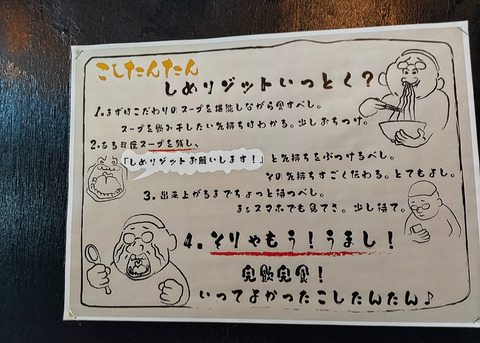 こしたんたん
しめリジットいっとく?
1.まずはこだわりのスープを堪能しながら食すべし。
スープを飲み干したい気持ちはわかる。出しおちつけ。
2.ある程度スープを残し、
「しめリジットお願いします!」と気持ちをぶつけるべし。
その気持ちすごく伝わる。とてもよし。
3.出来上がるまでちょっと待つべし。
まぁスマホでも見てさ。出し待て。
4.そりゃもう!うまし!
完飲完食!
いってよかったこしたんたん♪